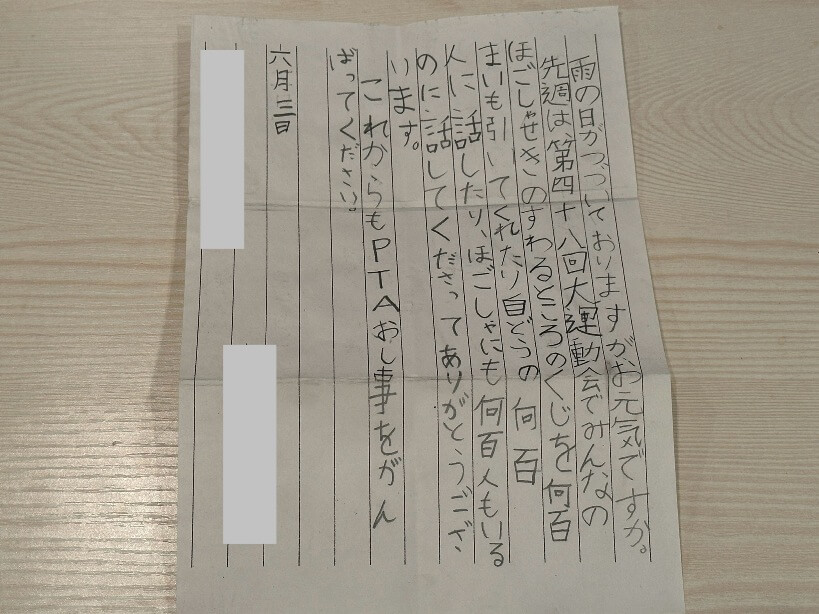 雨の日がつづいておりますがお元気ですか。
先週は、第四十八回大運動会でみんなの
ほごしゃせきのすわるところのくじを何百
まいも引いてくれたり自どうの何百
人に話したり、ほごしゃにも何百人もいる
のに話してくださってありがとうござ
います。
これからもPTAおし事をがん
ばってください。
六月三日